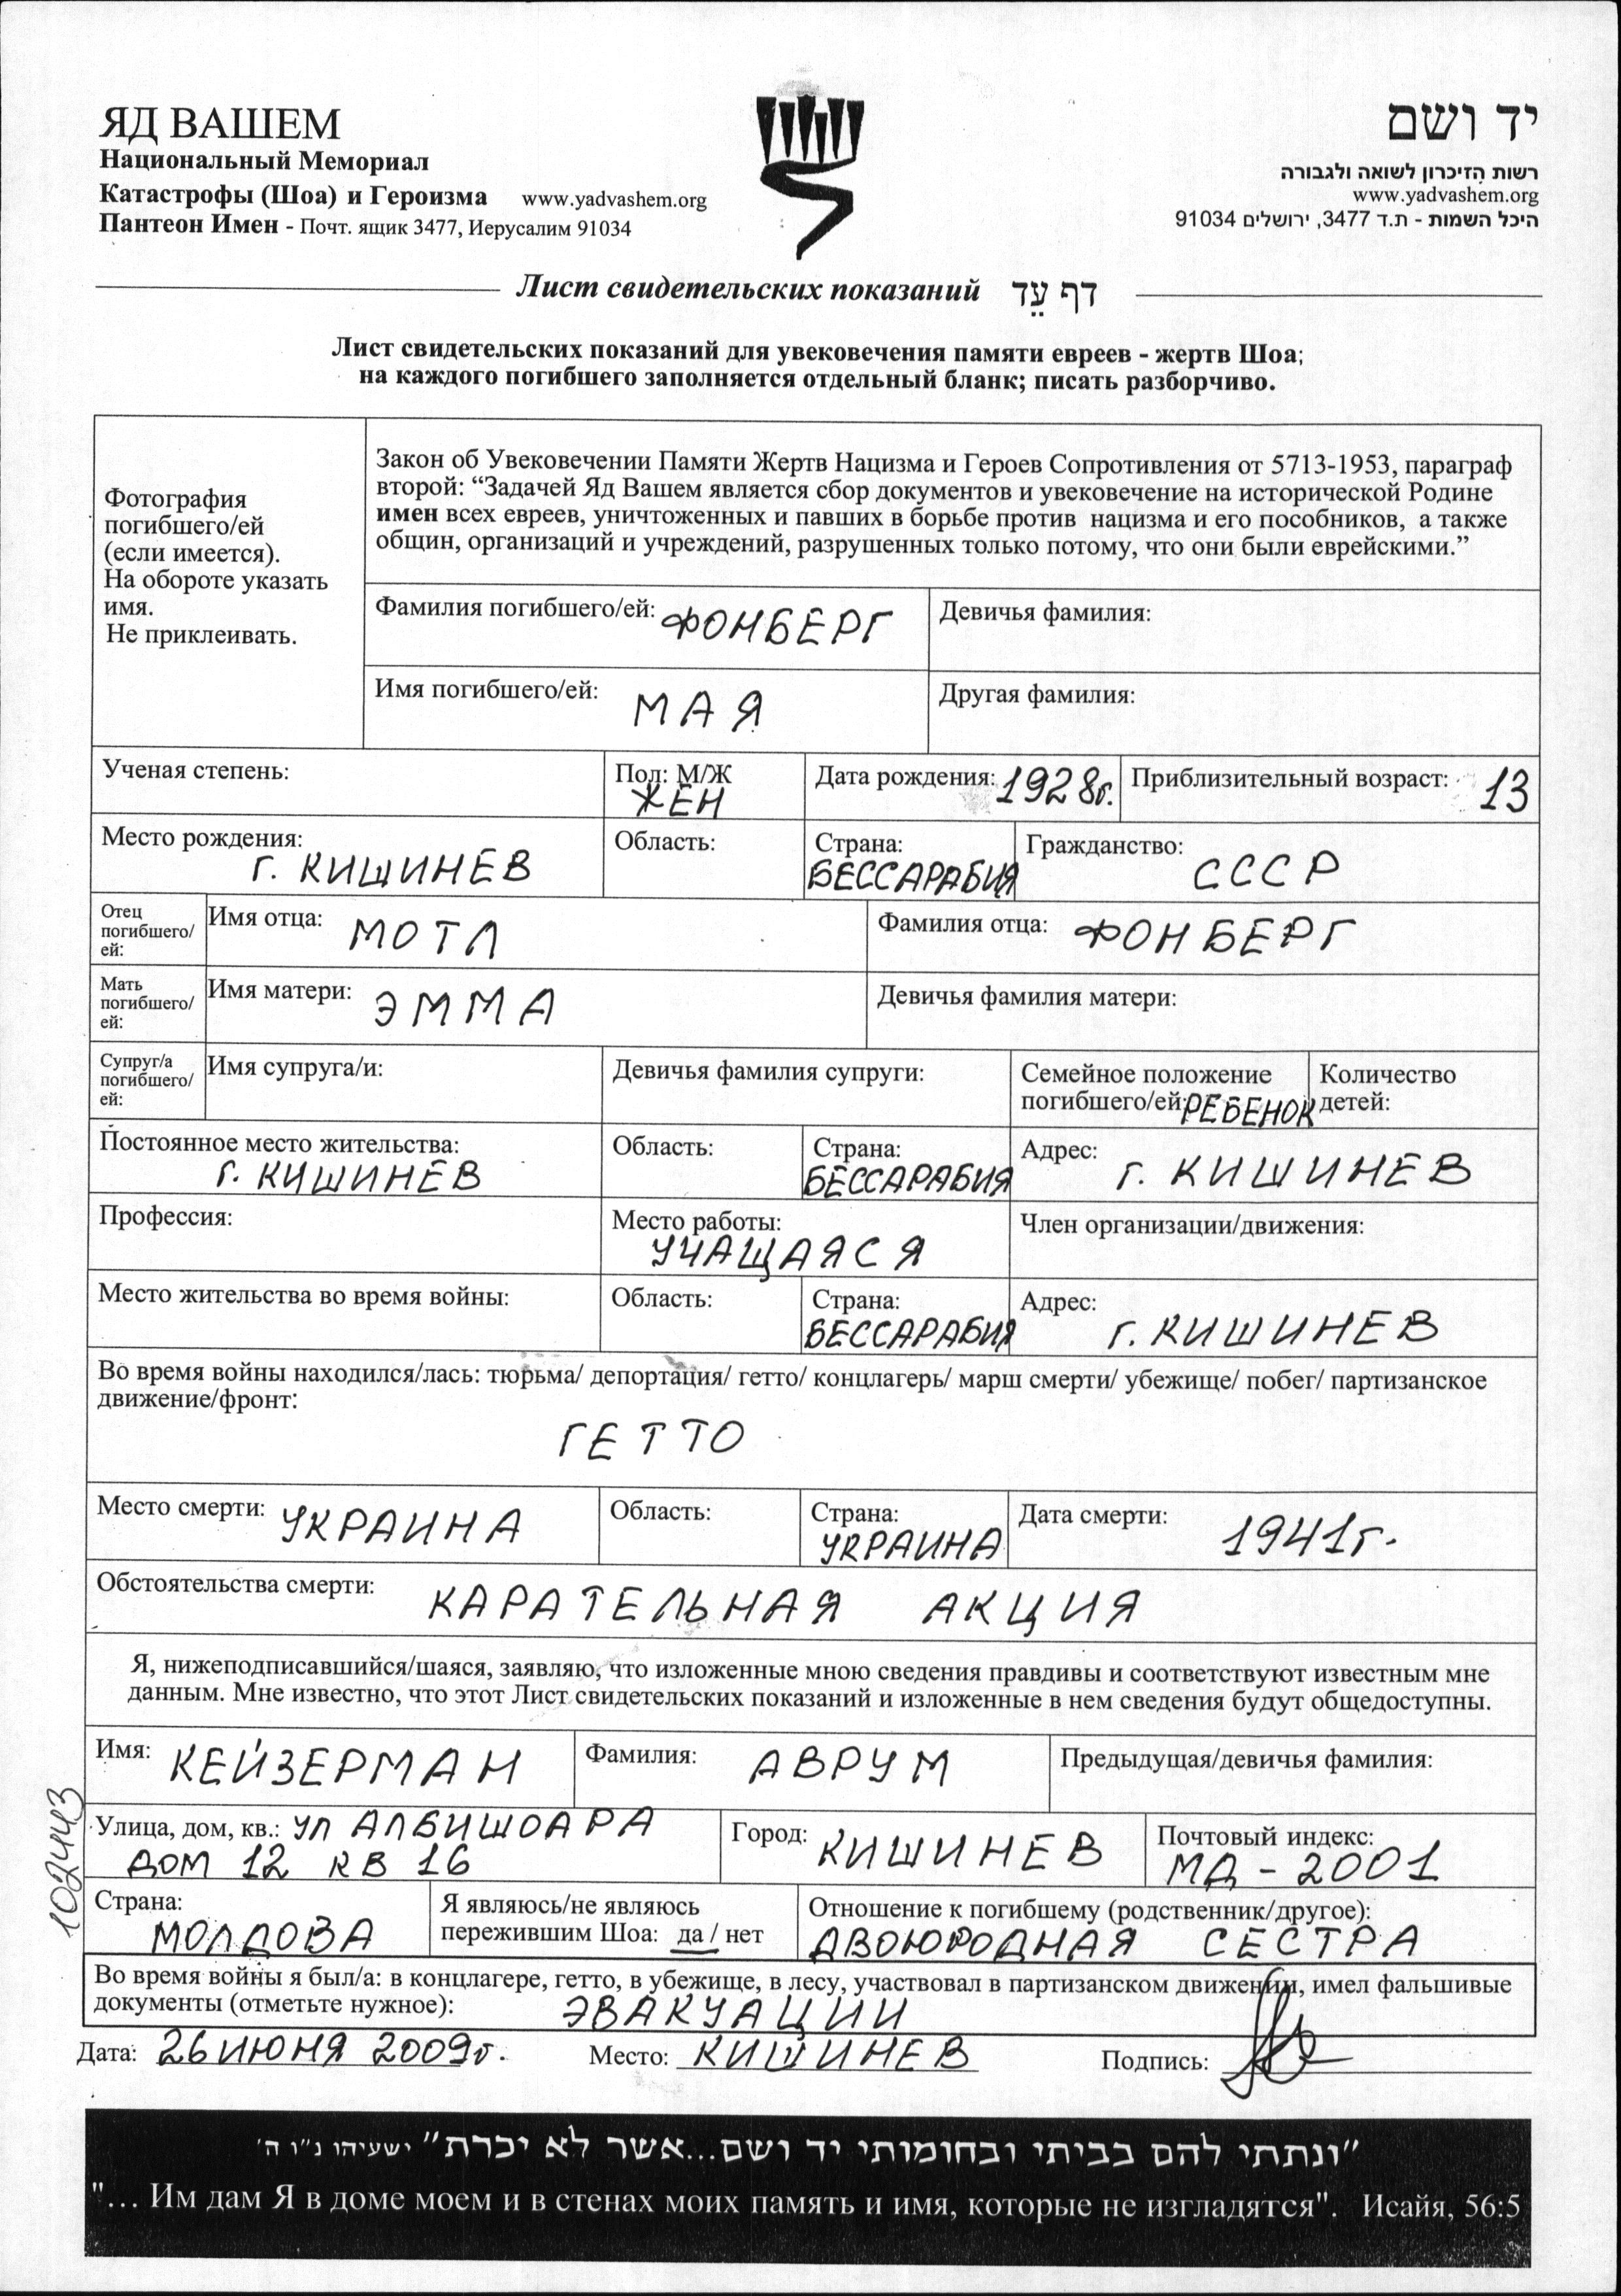 ЯД ВАШЕМ
Национальный Мемориал
Катастрофы (Шоа) и Героизма www.yadvashem.org
Пантеон Имен - Почт. ящик 3477, Иерусалим 91034
יד ושם
רשות הזיכרון לשואה ולגבורה
www.yadvashem.org
היכל השמות - ת.ד 3477, ירושלים 91034
Лист свидетельских показаний דף עֵד
Лист свидетельских показаний для увековечения памяти евреев - жертв Шоа;
на каждого погибшего заполняется отдельный бланк; писать разборчиво.
Фотография
погибшего/ей
(если имеется).
На обороте указать
имя.
Не приклеивать.
Закон об Увековечении Памяти Жертв Нацизма и Героев Сопротивления от 5713-1953, параграф
второй: “Задачей Яд Вашем является сбор документов и увековечение на исторической Родине
имен всех евреев, уничтоженных и павших в борьбе против нацизма и его пособников, а также
общин, организаций и учреждений, разрушенных только потому, что они были еврейскими.”
Фамилия погибшего/ей: ФОНБЕРГ Девичья фамилия:
Имя погибшего/ей: МАЯ Другая фамилия:
Ученая степень: Пол: М/Ж ЖЕН Дата рождения: 1928г. Приблизительный возраст: 13
Место рождения: г. КИШИНЕВ Область: Страна: БЕССАРАБИЯ Гражданство: СССР
Отец погибшего/ей: Имя отца: МОТЛ Фамилия отца: ФОНБЕРГ
Мать погибшего/ей: Имя матери: ЭММА Девичья фамилия матери:
Супруг/а погибшего/ей: Имя супруга/и: Девичья фамилия супруги: Семейное положение погибшего/ей: РЕБЕНОК Количество детей:
Постоянное место жительства: г. КИШИНЕВ Область: Страна: БЕССАРАБИЯ Адрес: г. КИШИНЕВ
Профессия: Место работы: УЧАЩАЯСЯ Член организации/движения:
Место жительства во время войны: Область: Страна: БЕССАРАБИЯ Адрес: г. КИШИНЕВ
Во время войны находился/лась: тюрьма/ депортация/ гетто/ концлагерь/ марш смерти/ убежище/ побег/ партизанское
движение/фронт:
ГЕТТО
Место смерти: УКРАИНА Область: Страна: УКРАИНА Дата смерти: 1941г.
Обстоятельства смерти: КАРАТЕЛЬНАЯ АКЦИЯ
Я, нижеподписавшийся/шаяся, заявляю, что изложенные мною сведения правдивы и соответствуют известным мне
данным. Мне известно, что этот Лист свидетельских показаний и изложенные в нем сведения будут общедоступны.
Имя: КЕЙЗЕРМАН Фамилия: АВРУМ Предыдущая/девичья фамилия:
Улица, дом, кв.: УЛ АЛБИШОАРА
ДОМ 12 КВ 16 Город: КИШИНЕВ Почтовый индекс: МД-2001
1024443
Страна: МОЛДОВА Я являюсь/не являюсь пережившим Шоа: да / нет Отношение к погибшему (родственник/другое): ДВОЮРОДНАЯ СЕСТРА
Во время войны я был/а: в концлагере, гетто, в убежище, в лесу, участвовал в партизанском движении, имел фальшивые
документы (отметьте нужное): ЭВАКУАЦИИ
Дата: 26 ИЮНЯ 2009г. Место: КИШИНЕВ Подпись:
"ונתתי להם בביתי ובחומותי יד ושם...אשר לא יכרת" ישעיהו נ"ו ה'
"... Им дам Я в доме моем и в стенах моих память и имя, которые не изгладятся". Исайя, 56:5